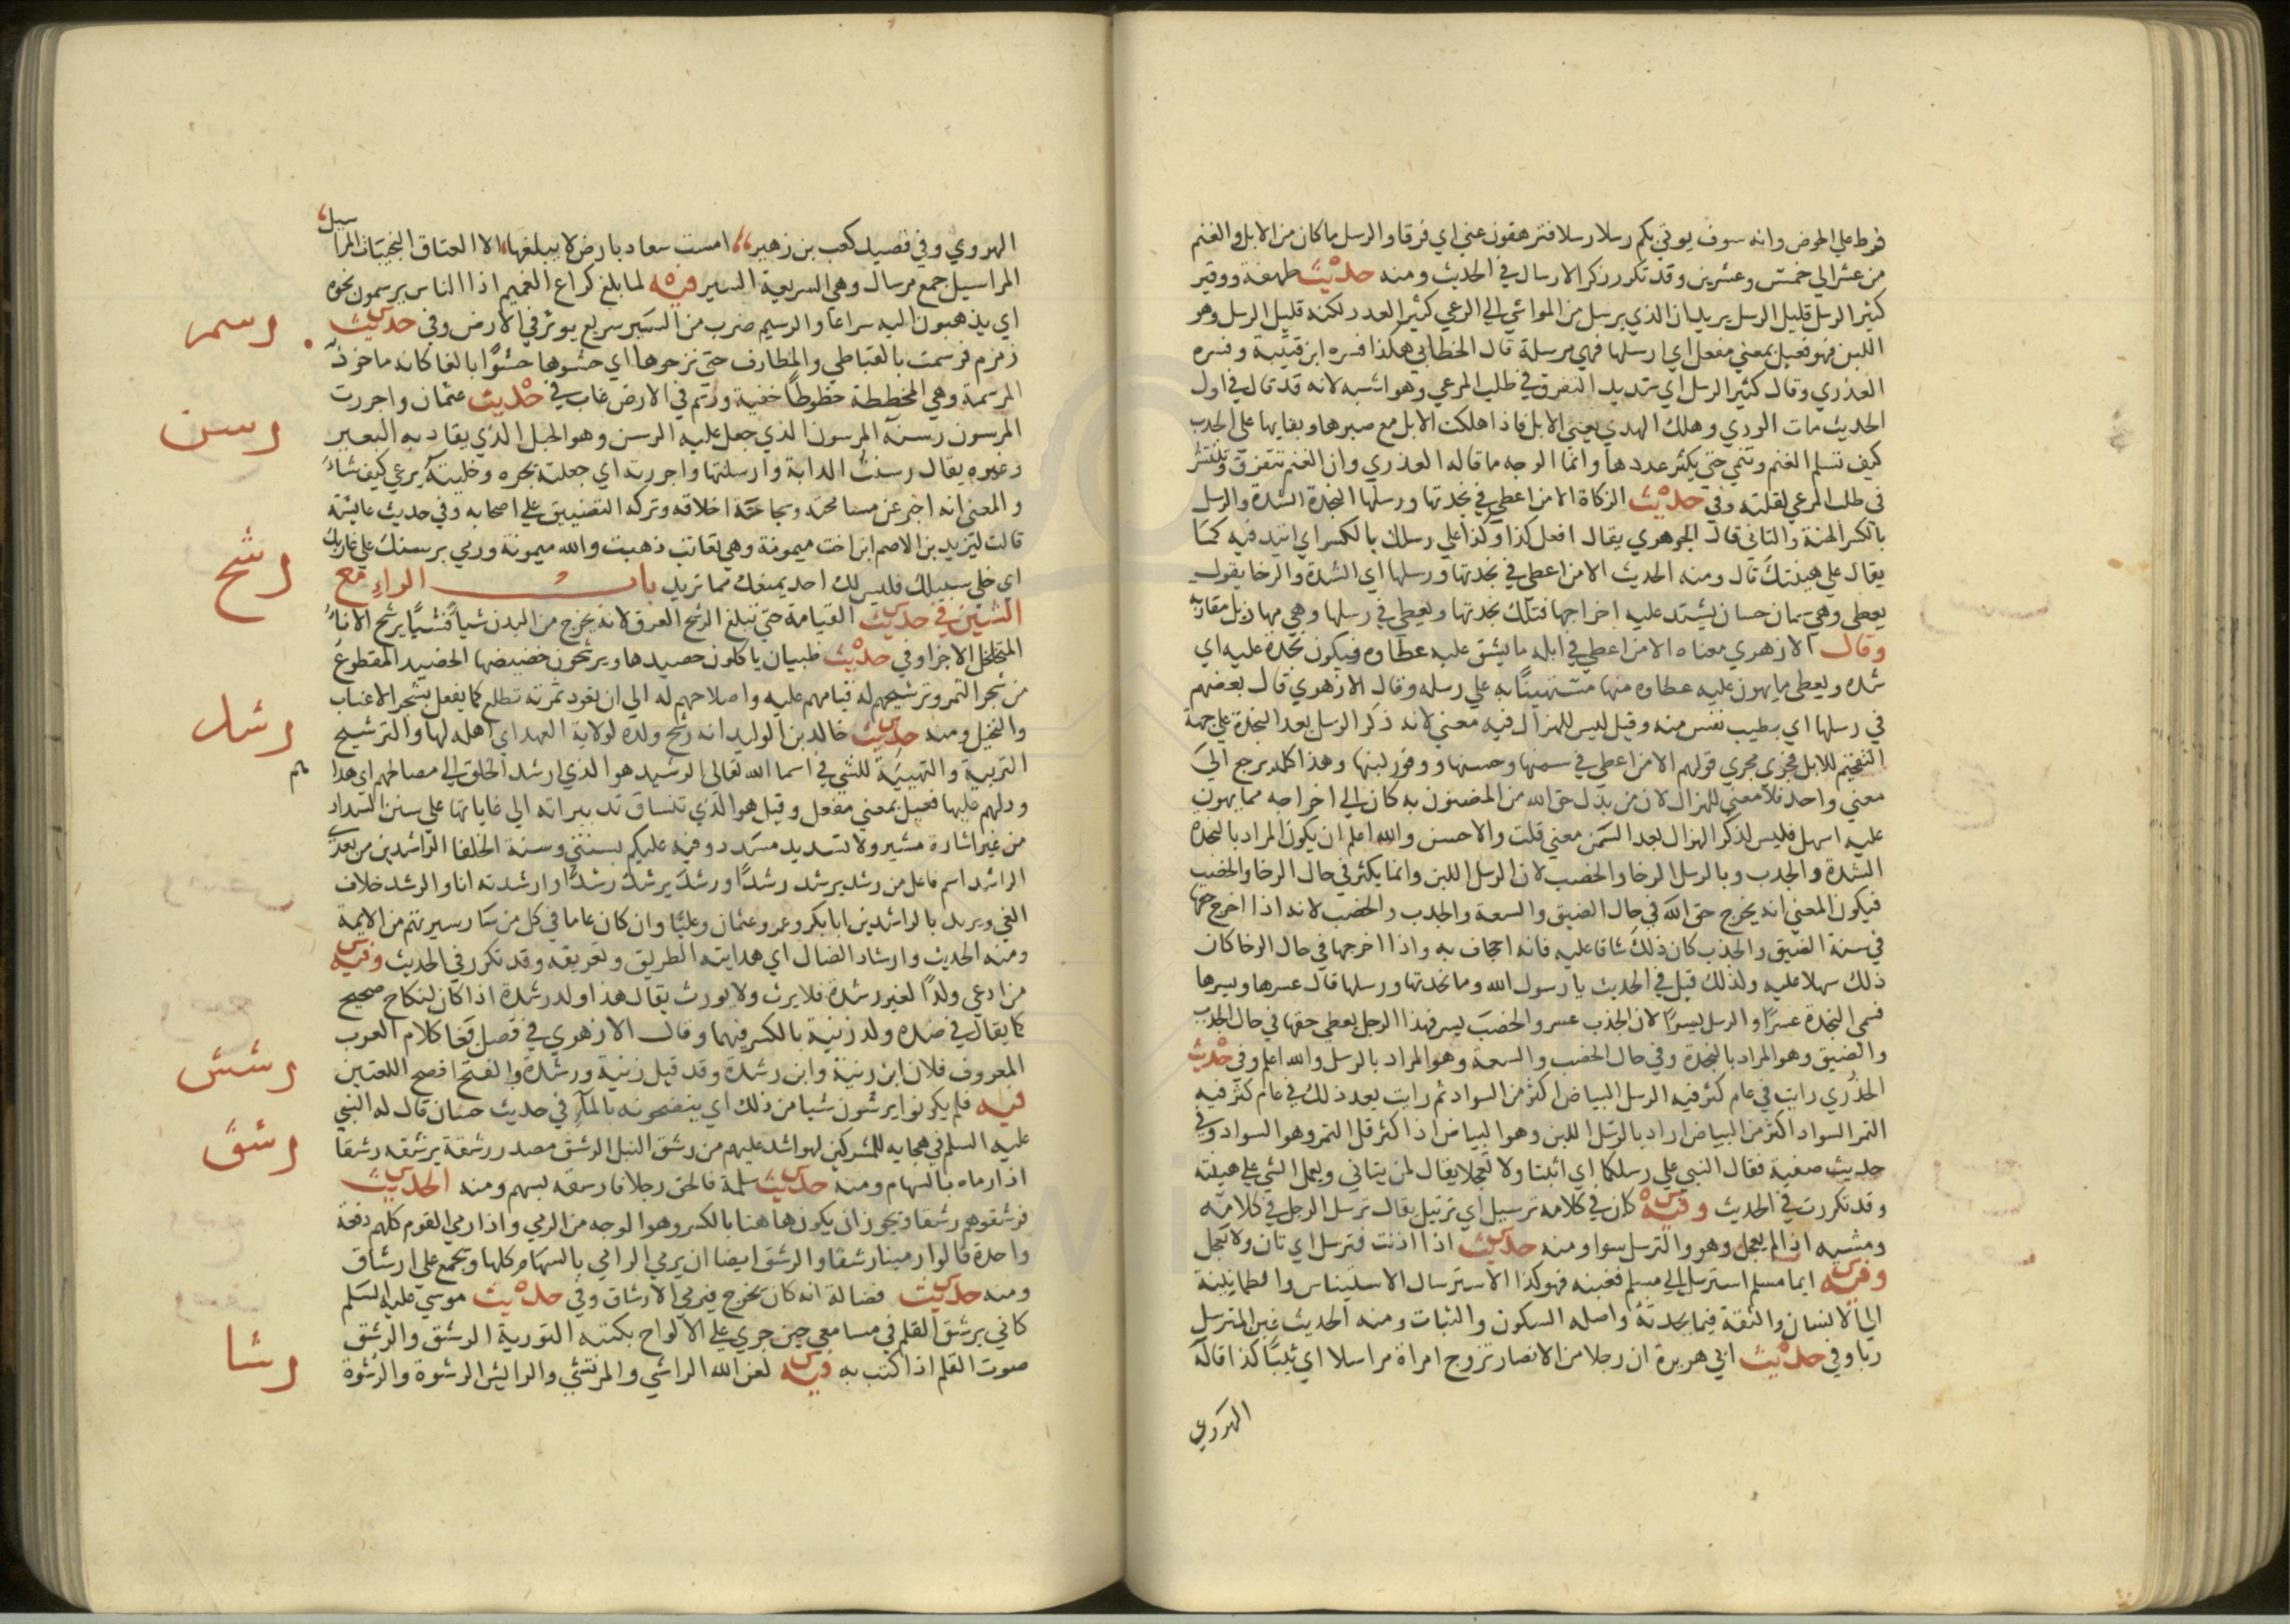 فرط علي الحوض وانه سوف يوتي بكم رسلا رسلا فترهقون عني اي فرقا والرسل ما كان من الابل والغنم
من عشر الي خمس وعشرين وقد تكرر ذكر الارسال في الحديث ومنه حديث طهفة ووقير
كثير الرسل قليل الرسل يريد ان الذي يرسل من المواشي الي الرعي كثير العدد لكنه قليل الرسل وهو
اللبن فهو فعيل بمعني مفعل اي ارسلها فهي مرسلة قال الخطابي هكذا فسره ابن قتيبة وفسره
العذري وقال كثير الرسل اي شديد التفرق في طلب المرعي وهو اشبه لانه قد قال في اول
الحديث مات الودي وهلك الهدي يعني الابل فاذا هلكت الابل مع صبرها وبقايها علي الجدب
كيف تسلم الغنم وتنمي حتي يكثر عددها وانما الوجه ما قاله العذري وان الغنم تتفرق وتنتشر
في طلب المرعي لقلته وفي حديث الزكاة الا من اعطي في نجدتها ورسلها النجدة الشدة والرسل
بالكسر الهنة والتاني قال الجوهري يقال افعل كذا وكذا علي رسلك بالكسر اي اتيد فيه كما
يقال علي هينتك قال ومنه الحديث الا من اعطي في نجدتها ورسلها اي الشدة والرخا يقول
يعطي وهي سمان حسان يشتد عليه اخراجها فتلك نجدتها ويعطي في رسلها وهي مهازيل مقاربه
وقال الازهري معناه الا من اعطي في ابله ما يشق عليه عطاوه فيكون نجدة عليه اي
شده ويعطي ما يهون عليه عطاوه منها مستهينا به علي رسله وقال الازهري قال بعضهم
في رسلها اي بطيب نفس منه وقيل ليس للهزال فيه معني لانه ذكر الرسل بعد النجدة علي جهة
التفخيم للابل فجري مجري قولهم الا من اعطي في سمنها وحسنها ووفور لبنها وهذا كله يرجع الي
معني واحد فلا معني للهزال لان من بذل حق الله من المضنون به كان الي اخراجه مما يهون
عليه اسهل فليس لذكر الهزال بعد السمن معني قلت والاحسن والله اعلم ان يكون المراد بالنجدة
الشدة والجدب وبالرسل الرخا والخصب لان الرسل اللبن وانما يكثر في حال الرخا والخصب
فيكون المعني انه يخرج حق الله في حال الضيق والسعة والجدب والخصب لانه اذا اخرج حقها
في سنة الضيق والجدب كان ذلك شاقا عليه فانه اجحاف به واذا اخرجها في حال الرخا كان
ذلك سهلا عليه ولذلك قيل في الحديث يا رسول الله وما نجدتها ورسلها قال عسرها ويسرها
فسمي النجدة عسرا والرسل يسرا لان الجدب عسر والخصب يسر فهذا الرجل يعطي حقها في حال الجدب
والضيق وهو المراد بالنجدة وفي حال الخصب والسعة وهو المراد بالرسل والله اعلم وفي حديث
الخدري رايت في عام كثر فيه الرسل البياض اكثر من السواد ثم رايت بعد ذلك في عام كثر فيه
التمر السواد اكثر من البياض اراد بالرسل اللبن وهو البياض اذا كثر قل التمر وهو السواد وفي
حديث صفية فقال النبي علي رسلكما اي اثبتا ولا تعجلا يقال لمن يتاني ويعمل الشي علي هينته
وقد تكررت في الحديث وفيه كان في كلامه ترسيل اي ترتيل يقال ترسل الرجل في كلامه
ومشيه اذا لم يعجل وهو والترسل سوا ومنه حديث اذا اذنت فترسل اي تان ولا تعجل
وفيه ايما مسلم استرسل الي مسلم فغبنه فهو كذا الاسترسال الاستيناس والطمانينة
الي الانسان والثقة فيما يحدثه واصله السكون والثبات ومنه الحديث غبن المترسل
ربا وفي حديث ابي هريرة ان رجلا من الانصار تزوج امراة مراسلا اي ثيبا كذا قاله
الهروي
الهروي وفي قصيد كعب بن زهير امست سعاد بارض لا يبلغها الا العتاق النجيبات المراسيل
المراسيل جمع مرسال وهي السريعة السير فيه لما بلغ كراع الغميم اذا الناس يرسمون نحوه
رسم
اي يذهبون اليه سراعا والرسيم ضرب من السير سريع يوثر في الارض وفي حديث
زمزم فرسمت بالقباطي والمطارف حتي نزحوها اي حشوها حشوا بالغا كانه ماخوذ
المرسمة وهي المخططة خطوطا خفية ورسم في الارض غاب في حديث عثمان واجررت
رسن
المرسون رسنه المرسون الذي جعل عليه الرسن وهو الحبل الذي يقاد به البعير
وغيره يقال رسنت الدابة وارسنتها واجررته اي جعلته يجره وخليته يرعي كيف شا
والمعني انه اخبر عن مسامحته وسجاحة اخلاقه وتركه التضييق علي اصحابه وفي حديث عايشة
قالت ليزيد بن الاصم ابن اخت ميمونة وهي تعاتبه ذهبت والله ميمونة ورمي برسنك علي غاربك
اي خلي سبيلك فليس لك احد يمنعك مما تريد باب الراء مع
رشح
الشين في حديث القيامة حتي تبلغ الرشح العرق لانه يخرج من البدن شيا فشيا يرشح الانا
المتخلخل الاجزا وفي حديث ظبيان ياكلون حصيدها ويرشحون خضيضها الخضيد المقطوع
من شجر التمر وترشيحهم له قيامهم عليه واصلاحهم له الي ان تعود ثمرته تطلع كما يفعل بشجر الاعناب
والنخيل ومنه حديث خالد بن الوليد انه رشح ولده لولاية العهد اي اهله لها والترشيح
رشد
التربية والتهيية للشي في اسما الله تعالي الرشيد هو الذي ارشد الخلق الي مصالحهم اي هداهم
ودلهم عليها فعيل بمعني مفعل وقيل هو الذي تنساق تدبيراته الي غاياتها علي سنن السداد
من غير اشارة مشير ولا تسديد مسدد وفيه عليكم بسنتي وسنة الخلفا الراشدين من بعدي
الراشد اسم فاعل من رشد يرشد رشدا ورشد يرشد رشدا وارشدته انا والرشد خلاف
الغي ويريد بالراشدين ابا بكر وعمر وعثمان وعليا وان كان عاما في كل من سار سيرتهم من الايمة
ومنه الحديث وارشاد الضال اي هدايته الطريق وتعريفه وقد تكرر في الحديث وفيه
من ادعي ولدا لغير رشدة فلا يرث ولا يورث يقال هذا ولد رشدة اذا كان لنكاح صحيح
كما يقال في ضده ولد زنية بالكسر فيهما وقال الازهري في فصل بغا كلام العرب
المعروف فلان ابن زنية وابن رشدة وقد قيل زنية ورشدة والفتح افصح اللغتين
رشش
فيه فلم يكونوا يرشون شيا من ذلك اي ينضحونه بالما في حديث حسان قال له النبي
رشق
عليه السلم في هجايه للمشركين لهو اشد عليهم من رشق النبل الرشق مصدر رشقه يرشقه رشقا
اذا رماه بالسهام ومنه حديث سلمة فالحق رجلا فارشقه بسهم ومنه الحديث
فرشقوهم رشقا ويجوز ان يكون هاهنا بالكسر وهو الوجه من الرمي واذا رمي القوم كلهم دفعة
واحدة قالوا رمينا رشقا والرشق ايضا ان يرمي الرامي بالسهام كلها ويجمع علي ارشاق
ومنه حديث فضالة انه كان يخرج فيرمي الارشاق وفي حديث موسي عليه السلم
كاني برشق القلم في مسامعي حين جري علي الالواح بكتبه التورية الرشق والرشق
رشا
صوت القلم اذا كتب به فيه لعن الله الراشي والمرتشي والرايش الرشوة والرشوة